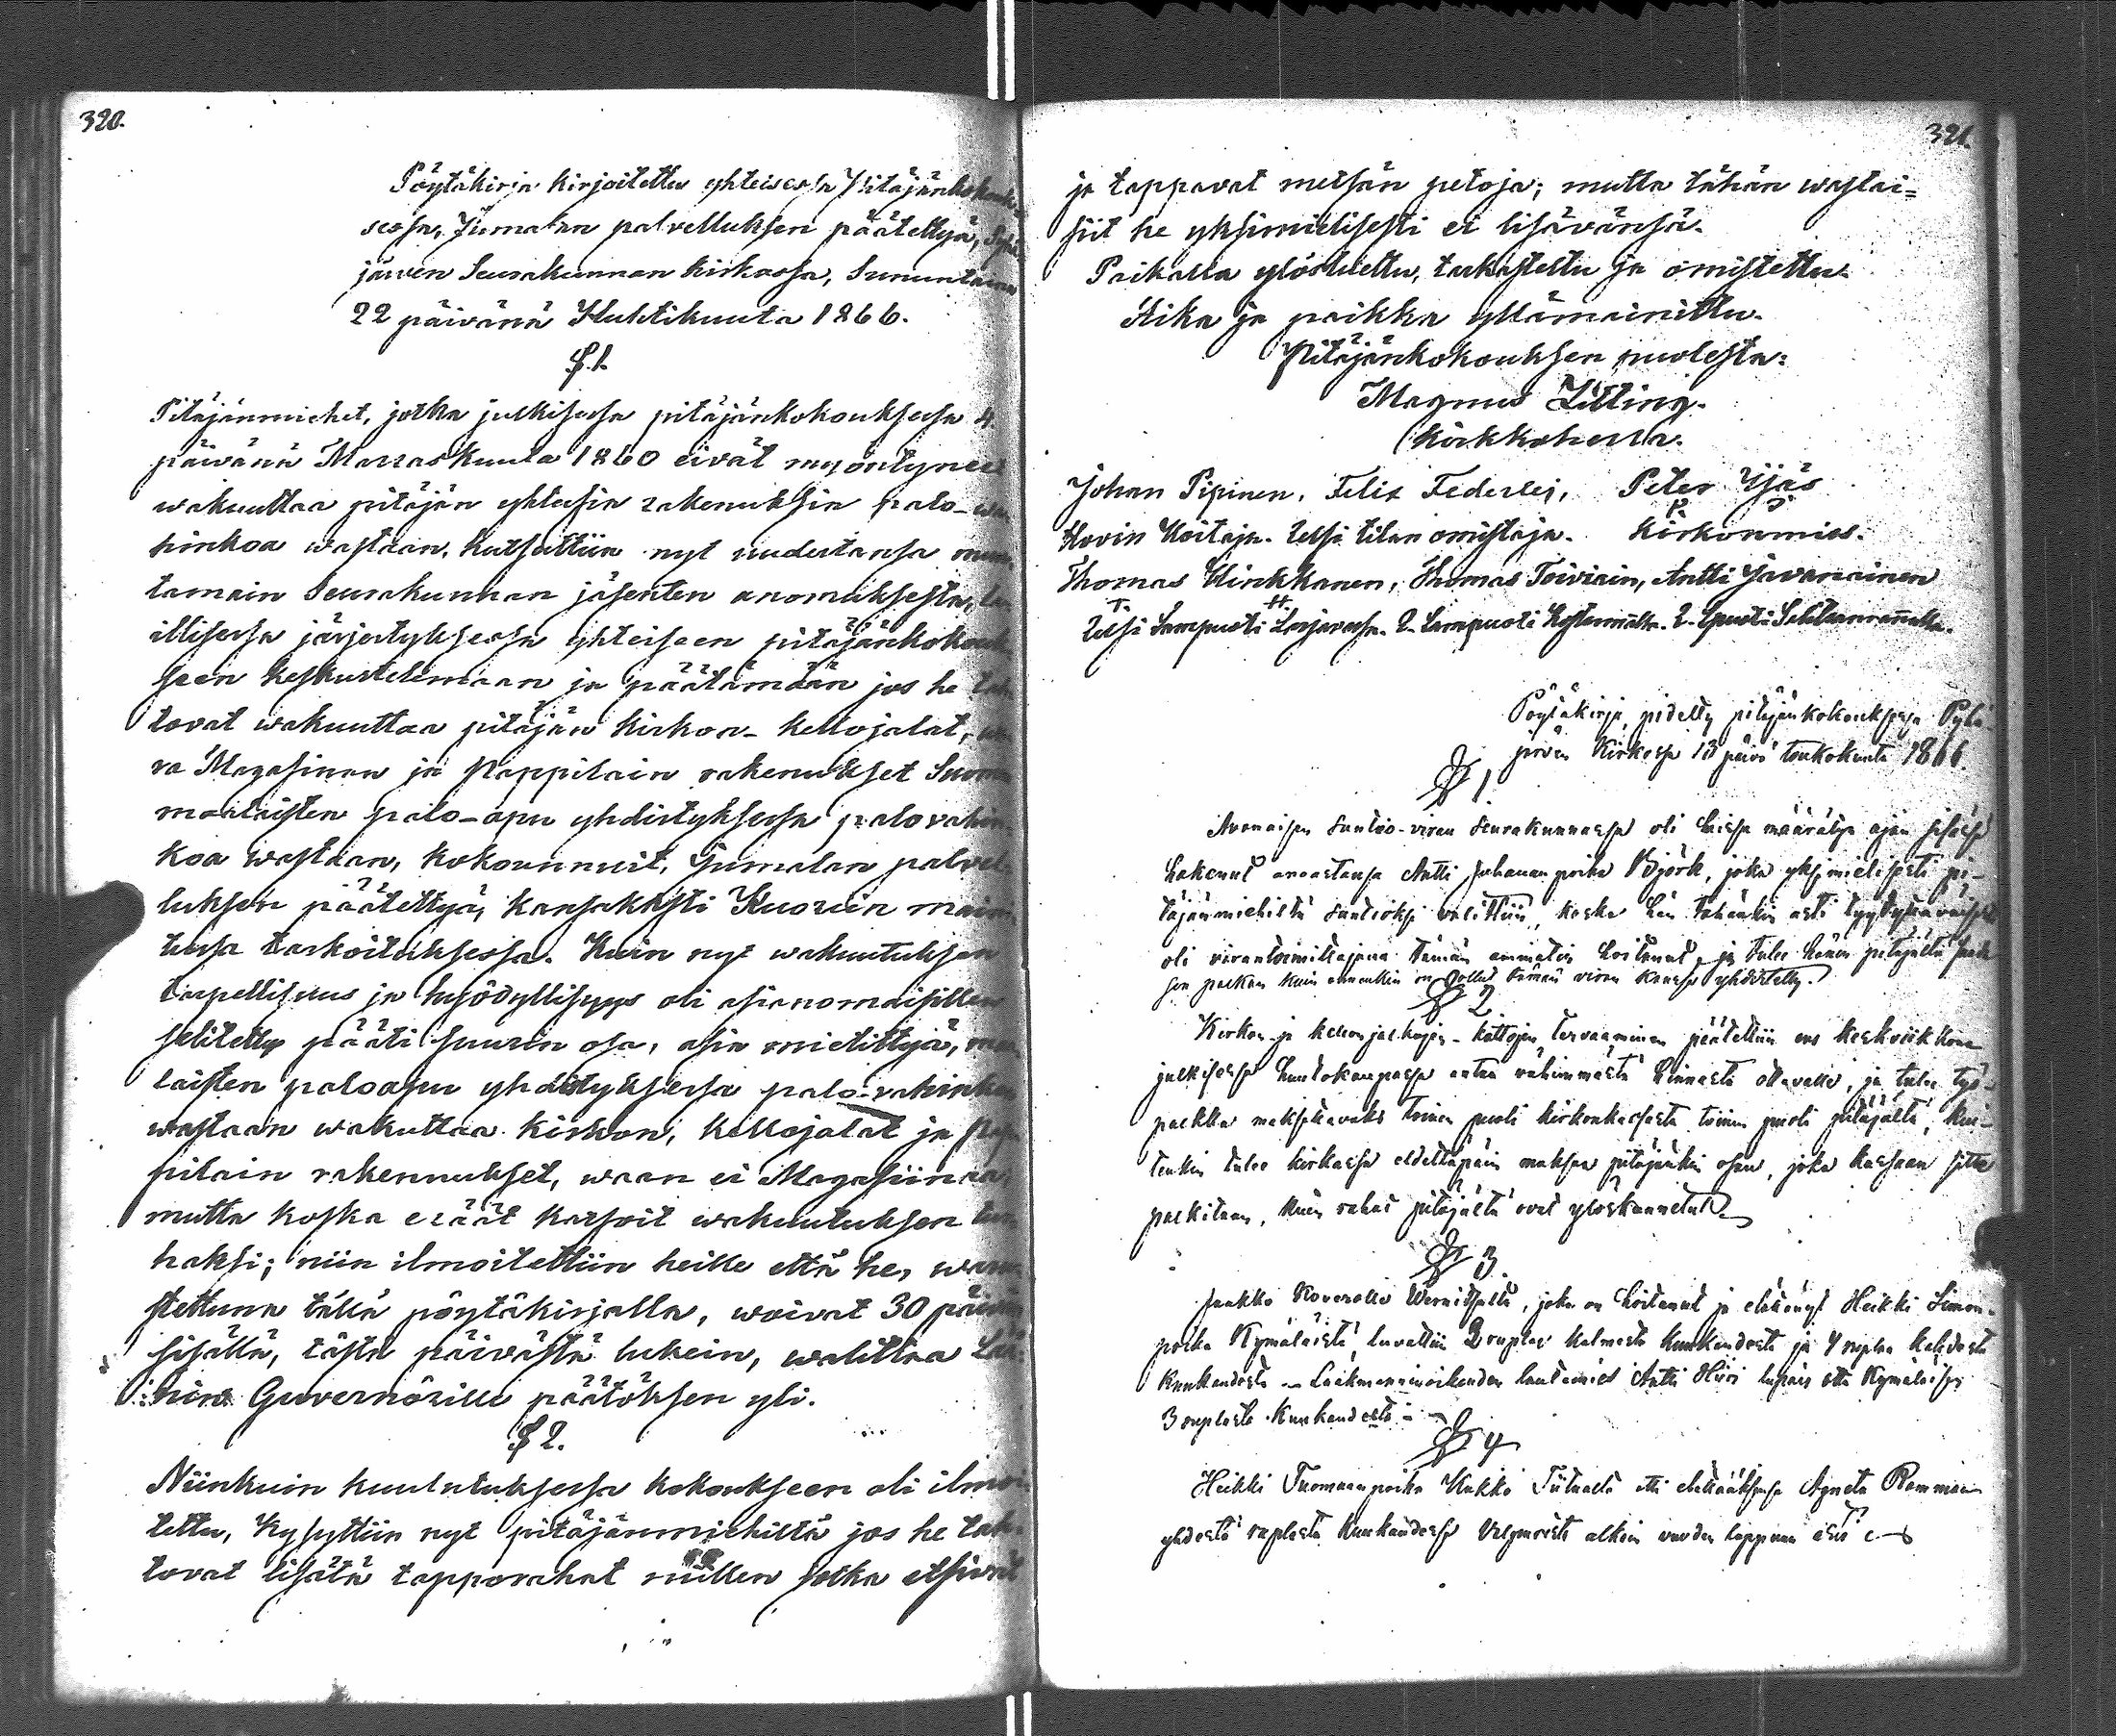 320.
Pöytäkirja kirjoitettu yhteisessä Pitäjänkokouk=
sessa, Jumalan palvelluksen päätettyä,
järven Seurakunnan kirkossa, Sunnuntaina
22 päivänä Huhtikuuta 1866.
§ 1.
Pitäjänmiehet, jotka julkisessa pitäjänkokouksessa 4
päivänä Marraskuuta 1860 eivät myöntyneet
wakuuttaa pitäjän yhteisiä rakenuksia palo-wa
hinkoa wastaan, kutsuttiin nyt uudestansa muu
tamain Seurakunnan jäsenten anomuksesta, la
illisessa järjestyksessä yhteiseen pitäjänkokouk
seen keskustelemaan ja päätämään jos he tah
tovat wakuuttaa pitäjän kirkon- kellojalat,
ra Magasinan ja Pappilain rakenukset Suoma
maalaisten palo-apu yhdistyksessä palovahin
koa wastaan, kokounnuit, Jumalan palvel
luksen päätettyä, kansakkästi Kuoriin maini
tussa tarkoituksessa. Kuin nyt wakuutuksen
tarpellisuus ja hyödyllisyys oli asianomaisillen
selitetty pääti suurin osa, asia mietittyä, maa
laisten paloapu yhdistyksessä palo-vahinkoa
wastaan wakuttaa kirkon, kellojalat ja Pap
pilain rakennukset, waan ei Magasiinaa,
mutta koska eräät katsoit wakuutuksen tur
haksi; niin ilmoitettiin heille että he, waru
stettuna tällä pöytäkirjalla, woivat 30 päivän
sisällä, tästä päivästä lukein, walittaa Lää
nin Guvernörille päätöksen yli.
§ 2.
Niinkuin kuulutuksessa kokoukseen oli ilmoi
tettu, kysyttiin nyt pitäjänmiehiltä jos he tah
tovat lisätä tapporahat niillen jotka etsivät
321.
ja tappavat metsän petoja; mutta tähän wastai=
siit he yksimielisesti ei lisävänsä.
Paikalla ylösluettu, tarkastettu ja omistettu.
Aika ja paikka yllämainittu.
Pitäjänkokouksen puolesta:
Magnus Zitting.
Kirkkoherra.
Johan Pipinen, Felix Federlej, Peter Yjäs
Hovin Hoitaja. Zelsi tilan omistaja. Kirkonmies.
Thomas Hinkkanen, Thomas Toiviain, Antti Javanainen
Pöytäkirja, pidetty pitäjänkokouksessa Pyhä
järven Kirkossa 13 päivä toukokuuta 1866.
§ 1
Avonaisen suntio-viran seurakunnassa oli laissa määrätyn ajan sisässä
hakenut anoastansa Antti Juhananpoika Björk, joka yksimielisesti pi-
täjänmiehiltä suntioksi valittiin, koska hän tähänkin asti tyydyttäväisesti
oli virantoimittajana tämän ammatin hoitanut, ja tulee hänen pitäjältä saada
sen palkan kuin ennenkin on ollut tämän viran kanssa yhdistetty.
§ 2
Kirkon ja kellonjalkojen-kattojen tervaaminen päätettiin ens keskviikkona
julkisessa huutokaupassa antaa vähimmästä hinnasta ottavalle, ja tulee työ-
palkka maksettavaks toinen puoli kirkonkassasta toinen puoli pitäjältä, kui-
tenkin tulee kirkkassa edeltäpäin maksaa pitäjänkin osan, joka kassaan sitte
palkitaan, kuin rahat pitäjältä ovat ylöskannetut
§ 3
Jaakko Koverolle Wernitsalta, joka on hoitanut ja elättänyt Heikki Simon-
poika Kymäläistä, luvattiin 2 ruplaa kolmesta kuukaudesta ja 4 ruplaa kahdesta
kuukaudesta - Laakmanninoikeuden lautamies Antti Hiiri lupais otta Kymäläisen
3 ruplasta kuukaudesta
§ 4
Heikki Tuomaanpoika Kukko Tiitualta otti elättääksensä Agneta Rommin
yhdestä ruplasta kuukaudessa Valpurista alkain vuoden loppuun asti